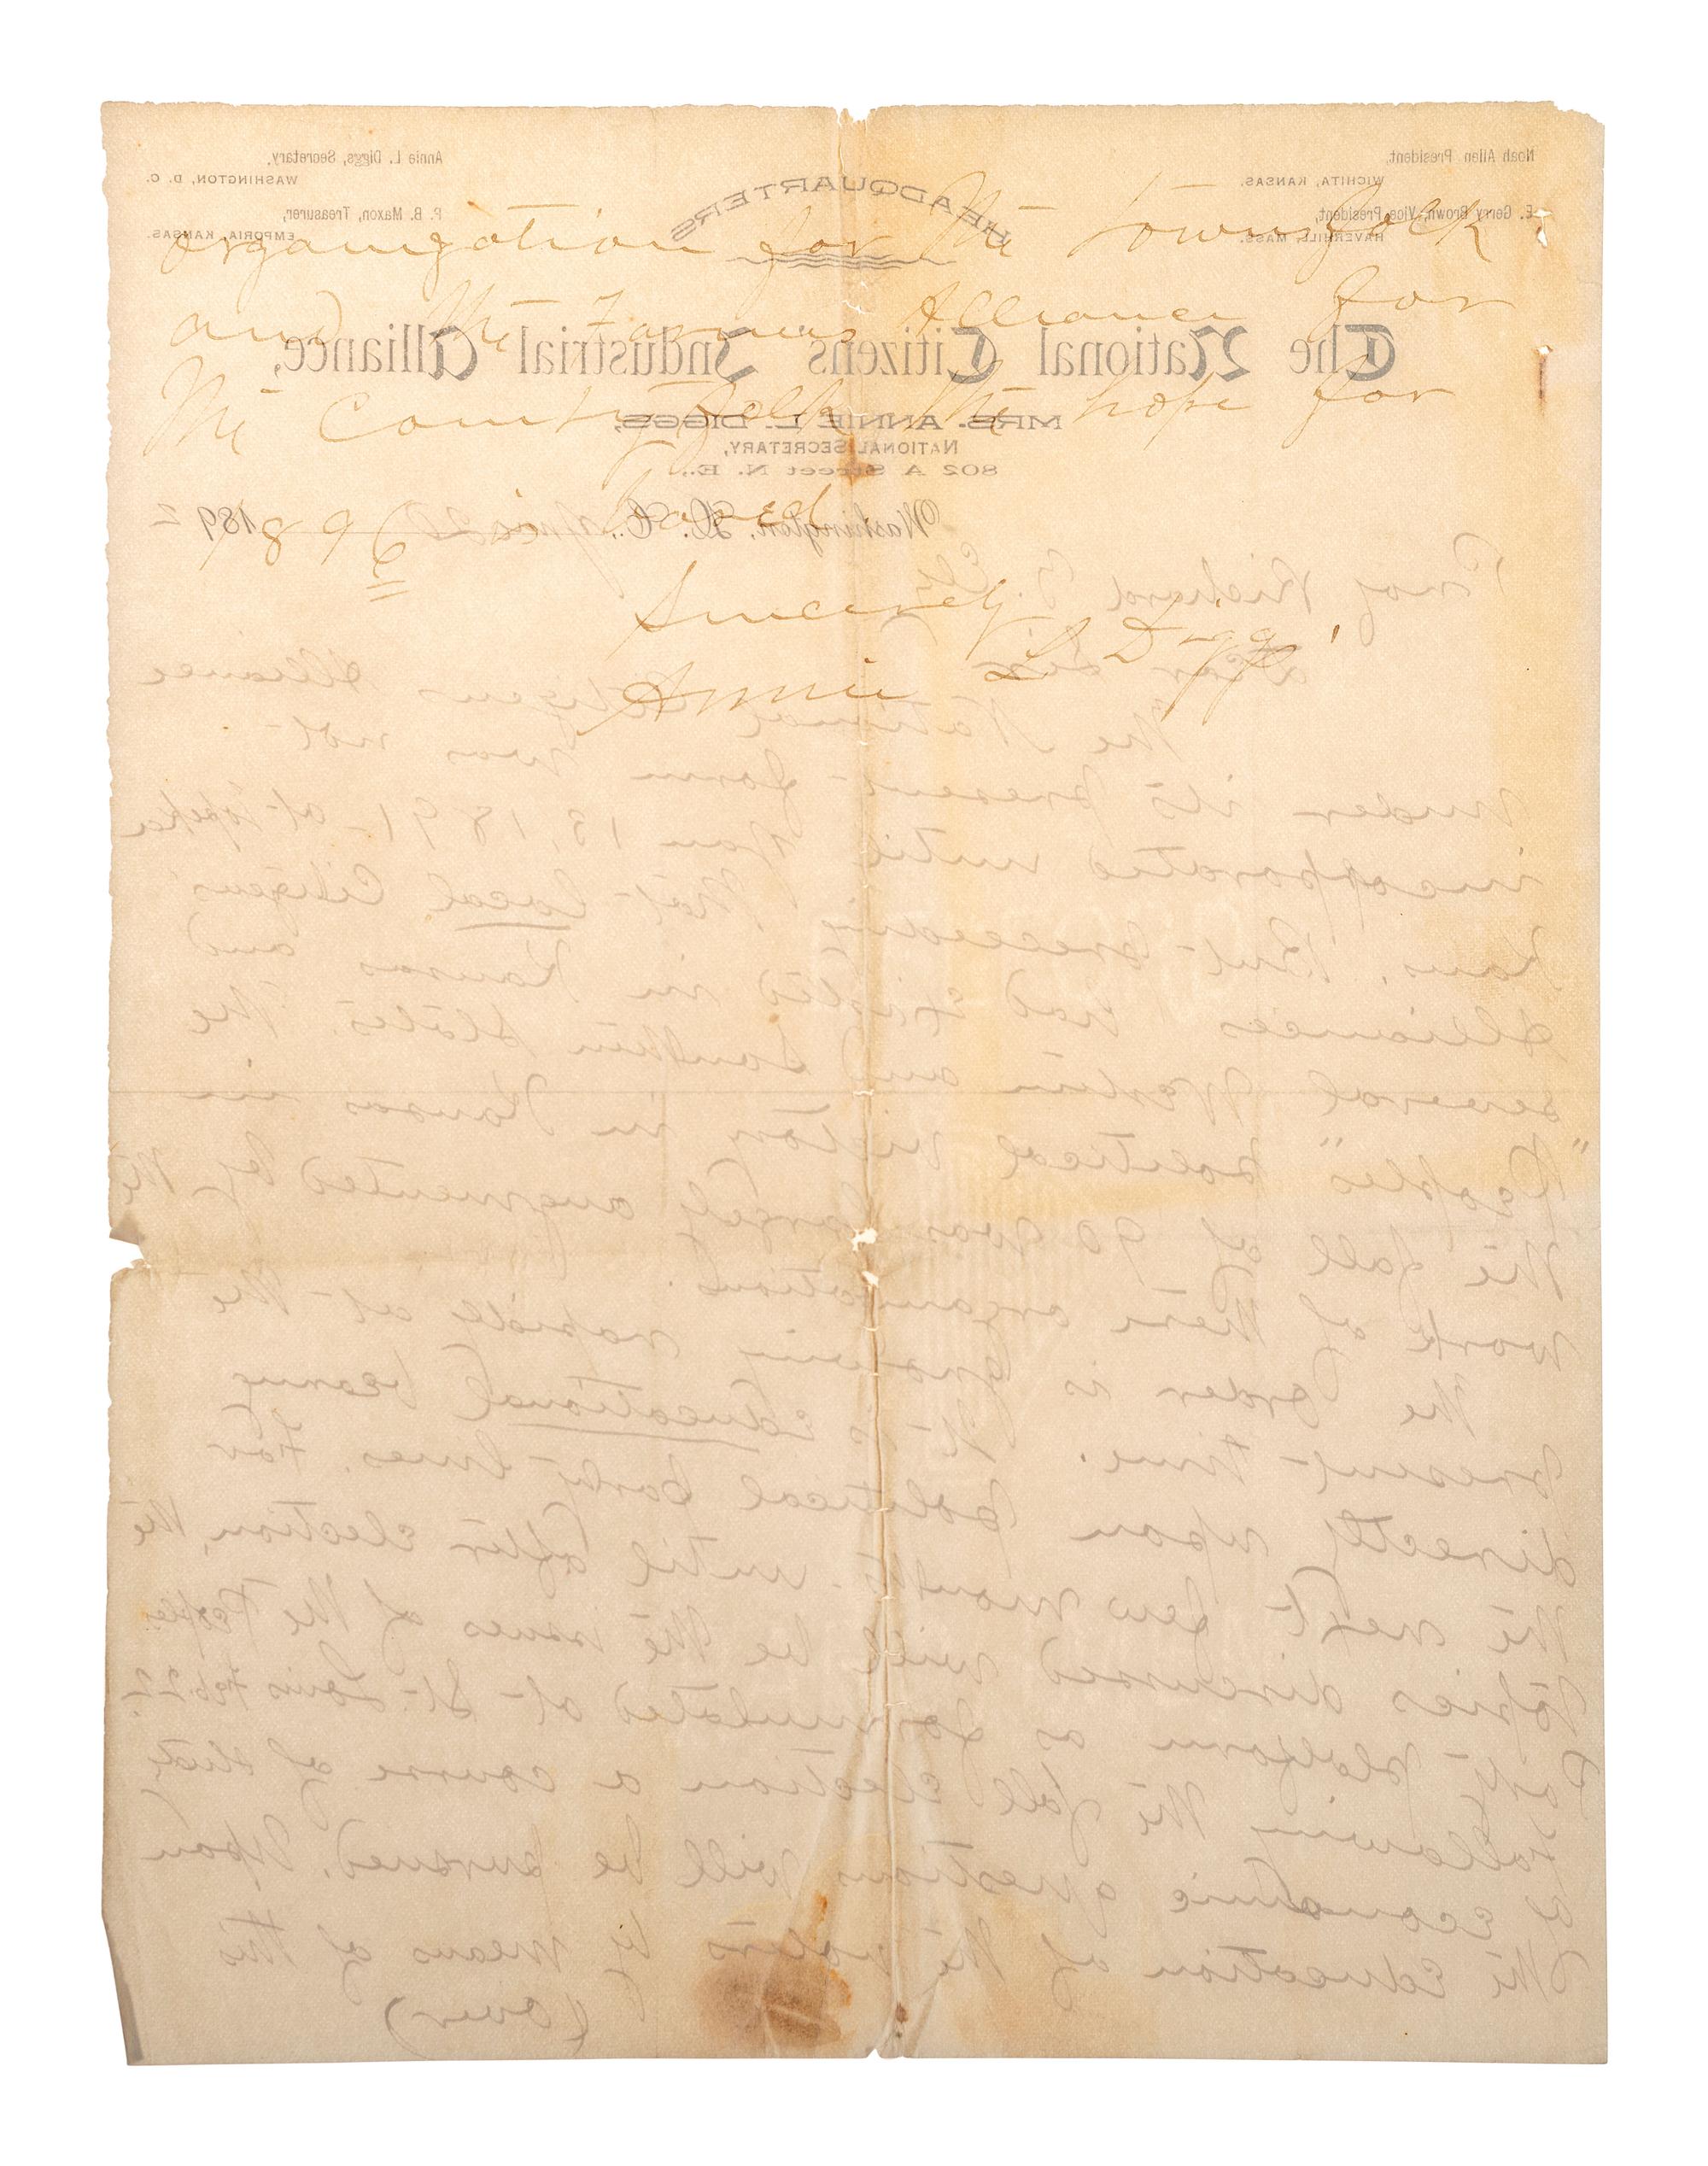 organization for the townsfolk
and the Farmers Alliance for
the Country folk the hope for
1896 is based
Sincerely
Annie L Diggs
HEADQUARTERS
Noah Allen President,
WICHITA, KANSAS.
E. Gerry Brown, Vice President,
HAVERHILL, MASS.
Annie L. Diggs, Secretary,
WASHINGTON, D. C.
P. B. Maxon, Treasurer,
EMPORIA, KANSAS.
The National Citizens Industrial Alliance,
MRS. ANNIE L. DIGGS,
NATIONAL SECRETARY,
802 A Street N. E.,
Washington, D. C., 1892
Prof Richard T. Ely
Dear Sir
The National Citizens Alliance
under its present form was not
incorporated until Jan 13, 1891 - at Topeka
Kans. But preceding that local Citizens'
Alliances had existed in Kansas and
several Western and Southern States. The
"Peoples" political victory in Kansas in
the fall of 90 was largely augmented by the
work of these organizations.
The order is growing rapidly at the
present time. It is Educational bearing
directly upon political party lines. For
the next few months until after election, the
topics discussed will be the issues of the Peoples
Party platform as formulated at St. Louis Feb. 22
following the fall election a course of study
of economic questions will be pursued. Upon
the Education of the voters by means of this
(over)